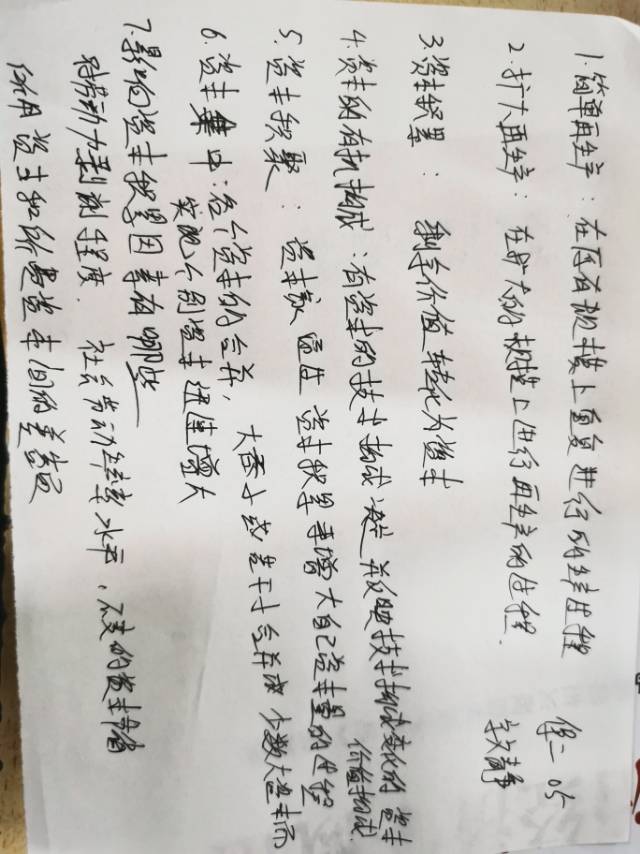 1.简单再生产：在原有规模上重复进行的生产过程
2.扩大再生产：在扩大的规模上进行再生产的过程.
3.资本积累：剩余价值转化为资本
4.资本的有机构成：有资本的技术构成决定并反映技术构成变化的资本
价值构成.
5.资本积聚：资本家通过资本积累来增大自己资本量的过程
6.资本集中：各个资本的合并，大吞小或若干小合并成少数大资本而
实现个别资本迅速增大
7.影响资本积累因素有哪些
对劳动力剥削程度.社会劳动生产率水平、不变的资本节省
所用资本和所费资本间的差额
05